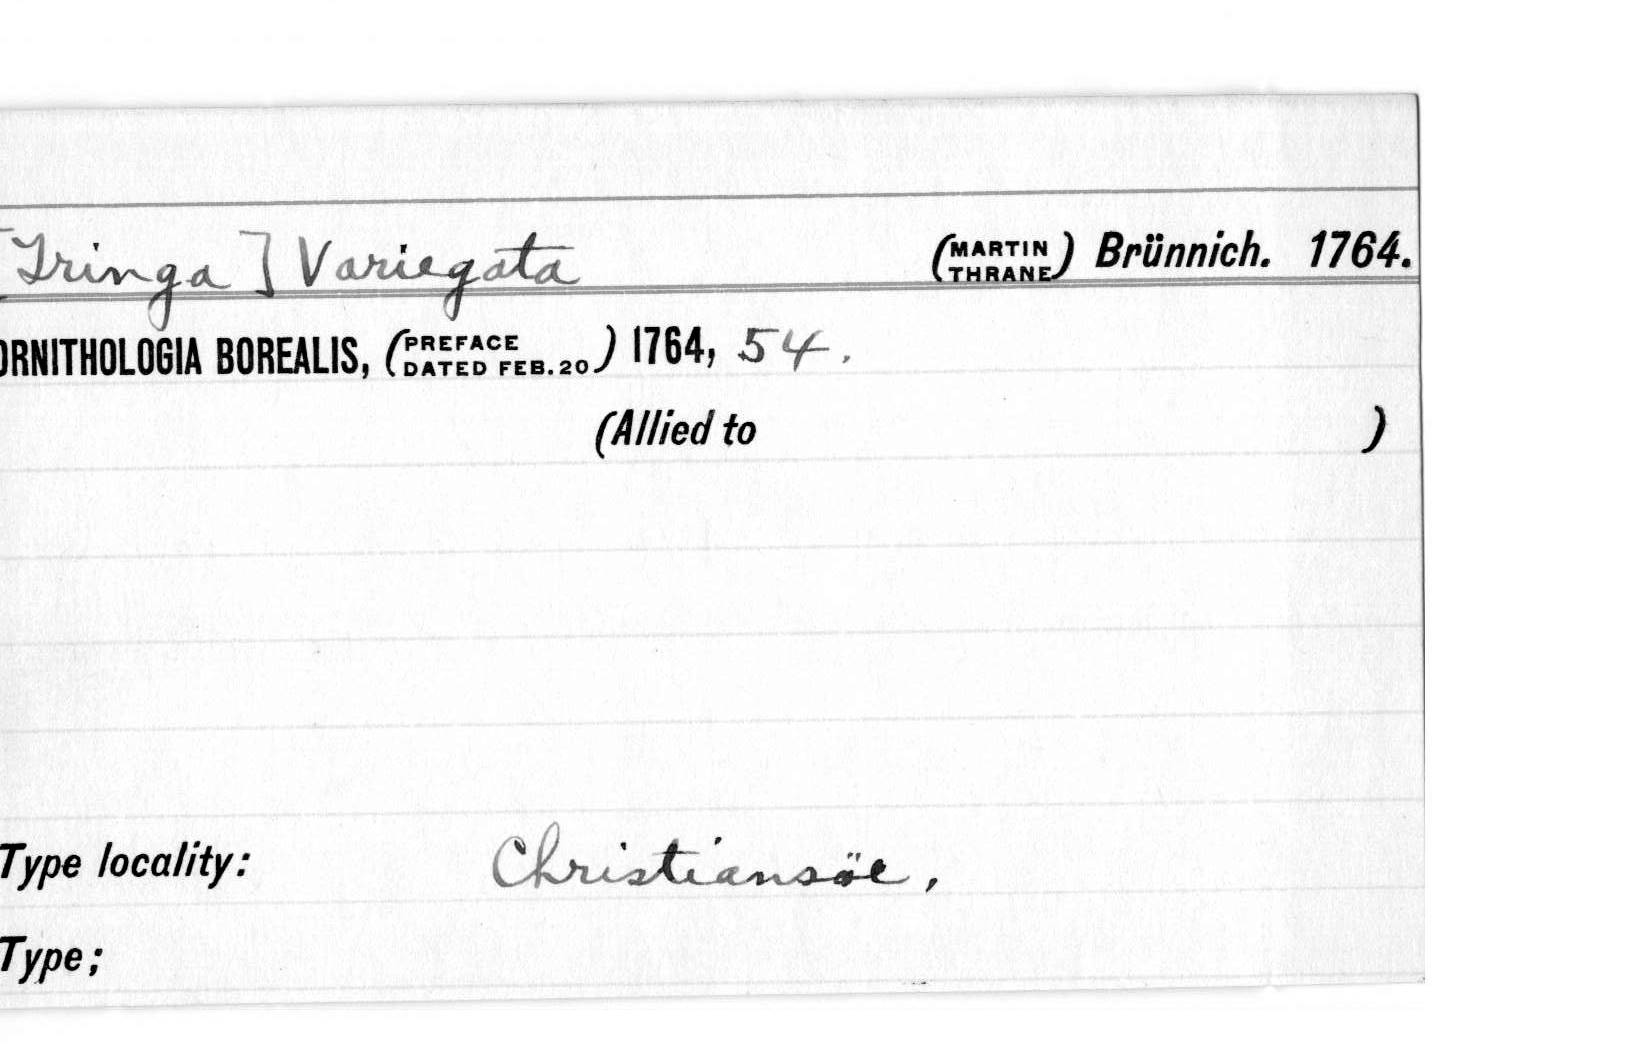 [Tringa] Variegata (MARTIN THRANE) Brünnich. 1764.
ORNITHOLOGIA BOREALIS, (PREFACE DATED FEB. 20) 1764, 54.
(Allied to )
Type locality: Christiansöe,
Type;